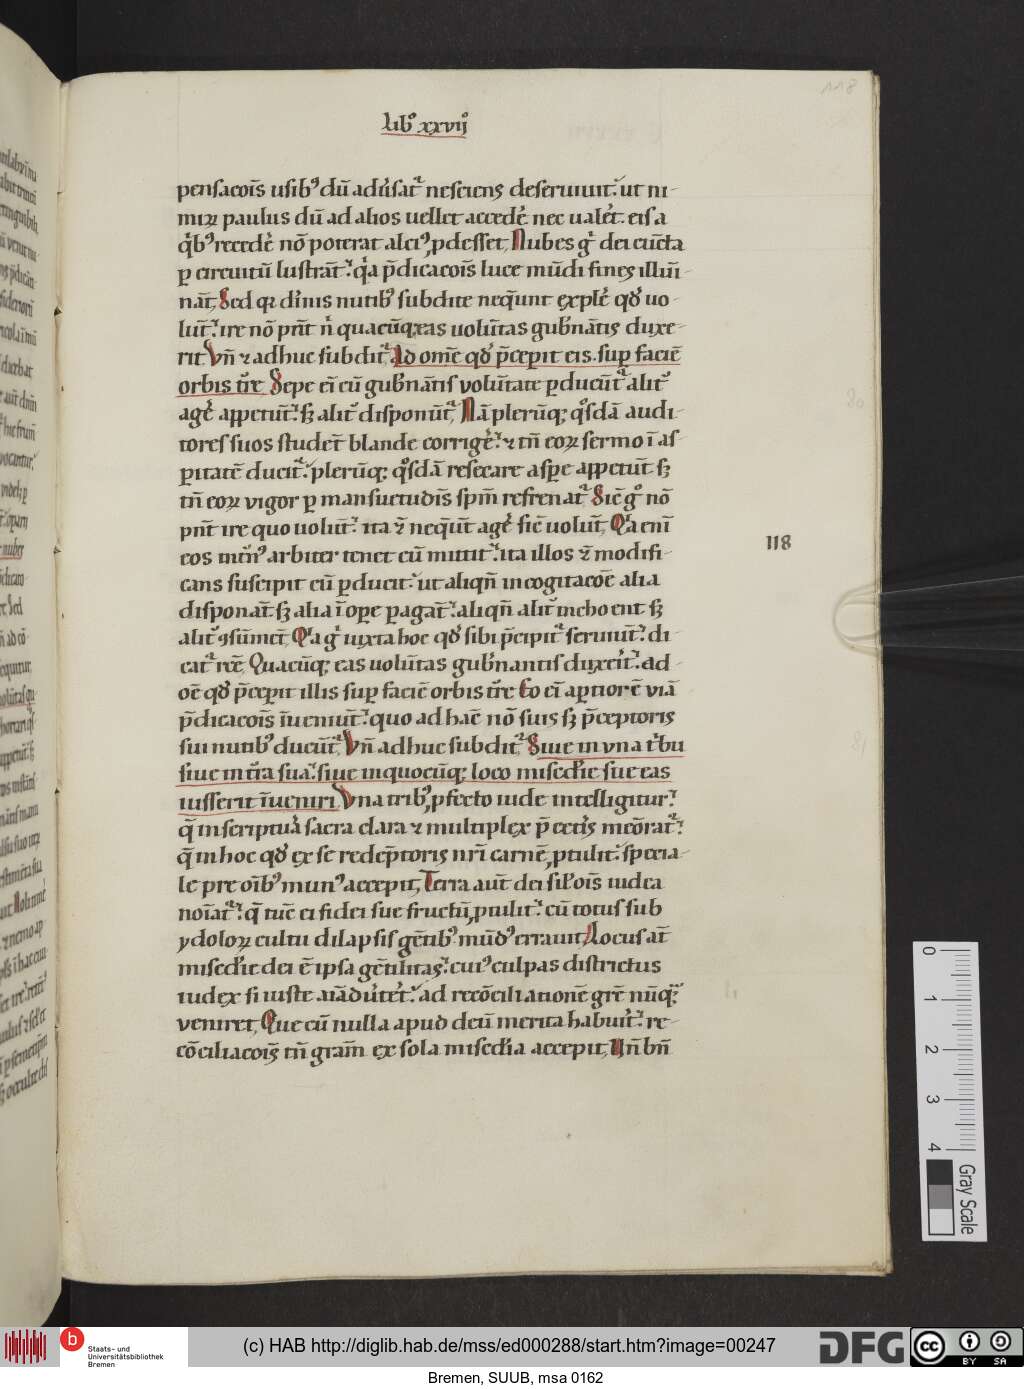 118
libꝰ xxvijͦ
pensac̄ois̄ usibꝰ dū adūsat᷑ nesciens deseruiuit. ut ni-
miꝝ paulus dū ad alios uellet accedē nec ualēt. eis a
q̄bꝰ recedē nō poterat alciꝰ ꝓdesset. Nubes g̃ dei cūcta
ꝑ circuitū lustrāt. q̇a p̄dicac̄ois̄ luce mūdi fines illūi-
nāt. Sed qꝛ diuinis nutibꝰ subdite neq̄unt explē qd̓ uo-
lūt. ire nō pn̄t n̄ quacūqꝫ eas uolūtas gub̄nātis duxe-
rit. Vn̄ ⁊ adhuc subdit᷑. Ad om̄e qd̓ p̄cepit eis. suꝑ faciē
orbis t̄re. Sepe em̄ cū gub̄nātis volūtate ꝑducūt᷑ alit̄
agē appetūt. sꝫ alit̄ disponūt᷑. Nā plerūqꝫ q̊sdā audi-
tores suos studēt blande corrigē. ⁊ tn̄ eoꝝ sermo ī as-
ꝑitatē ducit᷑. plerūqꝫ q̊sdā resecare asꝑe appetūt sꝫ
tn̄ eoꝝ vigor ꝑ mansuetudis̄ sp̄m refrenat᷑. Sic̄ g̊ nō
pn̄t ire quo uolūt. ita ⁊ neq̄ūt agē sic̄ uolūt. Q̇a eni
eos int̄nꝰ arbiter tenet cū mittit. ita illos ⁊ modifi-
118
cans suscipit cū ꝑducit. ut aliqn̄ in cogitac̄oe alia
disponāt. sꝫ alia ī oꝑe ꝑagāt. aliqn̄ alit̄ inchoent sꝫ
alit̄ ꝯsūmēt. Q̇a g̃ iuxta hoc qd̓ sibi p̄cipit᷑ seruiūt. di-
cat᷑ rc̄e. Quacūqꝫ eas uolūtas gub̄nantis duxerit. ad
oē qd̓ p̄cepit illis suꝑ faciē orbis t̄re. Eo em̄ aptiorē viā
p̄dicac̄ois̄ īueniūt. quo ad hāc nō suis sꝫ p̄ceptoris
sui nutibꝰ ducūt᷑. Vn̄ adhuc subdit᷑. Siue in vna t̓bu
siue in t̄ra sua. siue in quocūqꝫ loco mis̄cdie sue eas
iusserit īueniri. Vna tribꝰ ꝓfecto iude intelligitur.
q̄ in scriptura sacra clara ⁊ multiplex p̄ cet̄is mēorat᷑.
q̄ in hoc qd̓ ex se redēptoris nr̄i carnē ꝓtulit. specia-
le pre oīb̄ꝰ munꝰ accepit. Terra aut̄ dei sil̓ois̄ iudea
noīat᷑. q̄ tūc ei fidei sue fructū ꝓtulit. cū totus sub
ydoloꝝ cultu dilapsis gētibꝰ mūdꝰ errauit. Locus at̄
mis̄cdie dei ē ipsa gētilitas. cuiꝰ culpas districtus
iudex si iuste aīaduertet. ad recōciliationē gr̄e nūqꝫ
veniret. Que cū nulla apud deū merita habuit. re-
cōciliac̄ois̄ tn̄ gr̄am ex sola mis̄cdia accepit. Vn̄ bn̄
0 1 2 3 4
Gray Scale
Staats- und
Universitätsbibliothek
Bremen
(c) HAB http://diglib.hab.de/mss/ed000288/start.htm?image=00247
DFG
cc BY SA
Bremen, SUUB, msa 0162